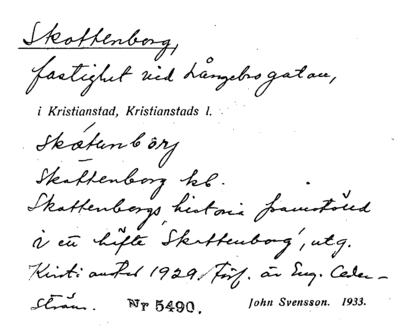 Skottenborg,
fastighet vid Långebrogatan,
i Kristianstad, Kristianstads l.
skåtənbŏrj
Skottenborg kb.
Skottenborgs historia framställd
i ett häfte 'Skottenborg', utg.
Kristianstad 1929. Förf. är Eug. Ceder-
ström. Nr 5490. John Svensson. 1933.